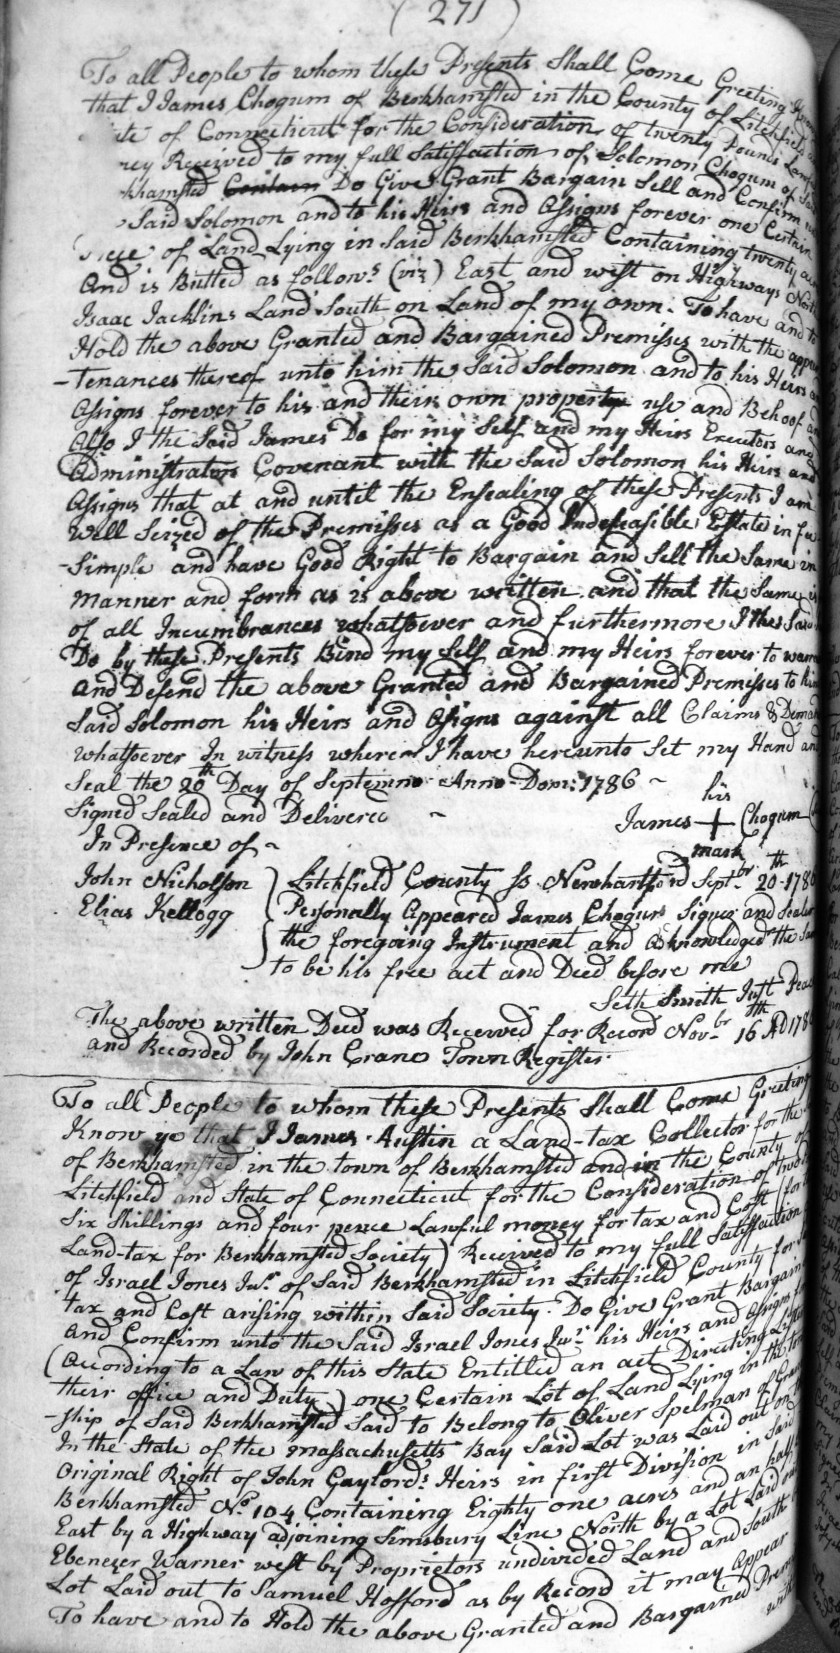 ( 271 )
To all People to whom these Presents Shall Come Greeting
that I James Chogum of Berkhamsted in the County of Litchfield
of Connecticut for the Consideration of twenty Pounds Lawful
Received to my full Satisfaction of Solomon Chogum of Said
Do Give Grant Bargain Sell and Confirm
Said Solomon and to his Heirs and Assigns forever one Certain
of Land Lying in Said Berkhamsted Containing twenty
And is Butted as follows (viz) East and west on Highways North
Isaac Jacklins Land South on Land of my own. To have and to
Hold the above Granted and Bargained Premisses with the
-Tenances thereof unto him the Said Solomon and to his Heirs
Assigns forever to his and their own property use and Behoof
Also I the Said James Do for my Self and my Heirs Executors and
Administrators Covenant with the Said Solomon his Heirs and
Assigns that at and until the Ensealing of these Presents I am
Well Seized of the Premisses as a Good Indefeasible Estate in
-Simple and have Good Right to Bargain and Sell the Same in
Manner and form as is above written and that the Same is
of all Incumbrances whatsoever and furthermore I the Said
Do by these Presents Bind my Self and my Heirs forever to
and Defend the above Granted and Bargained Premisses to
Said Solomon his Heirs and Assigns against all Claims &
whatsoever In witness I have hereunto Set my Hand and
Seal the 20th Day of Anno Dom: 1786 ~
Signed Sealed and Delivered ~ his
In Presence of ~ James + Chogum
mark
John Nicholson Litchfield County Ss Newhartford Septbr 20th
Elias Kellogg Personally Appeared James Chogum Signer and Sealer
the foregoing Instrument and Acknowledged the
to be his free act and Deed before me
Seth Smith Just Peace
The above written Deed was Received for Record Novbr 16th AD
and Recorded by John Crane Town Register
To all People to whom these Presents Shall Come Greeting
Know ye that I James Austin a Land-tax Collector for the
of Berkhamsted in the town of Berkhamsted and in the County of
Litchfield and State of Connecticut for the Consideration of
Six Shillings and four pence Lawful money for tax and Cost (for
Land-tax for Berkhamsted Society) Received to my full Satisfaction
of Israel Jones Junr of Said Berkhamsted in Litchfield County for
tax and Cost arising within Said Society. Do Give Grant Bargain
And Confirm unto the Said Israel Jones Junr his Heirs and Assigns
(According to a Law of this State Entitled an act Directing
their office and Duty) one Certain Lot of Land Lying in the
-ship of Said Berkhamsted Said to Belong to Oliver Spelman of
In the State of the Massachusetts Bay Said Lot was Laid out on
Original Right of John Gaylords Heirs in first Division in Said
Berkhamsted No 104 Containing Eighty one acres and an half
East by a Highway adjoining Simsbury Line North by a Lot Laid
Ebenezer Warner west by Proprietors undivided Land and South
Lot Laid out to Samuel Hofford as by Record it may Appear
To have and to Hold the above Granted and Bargained